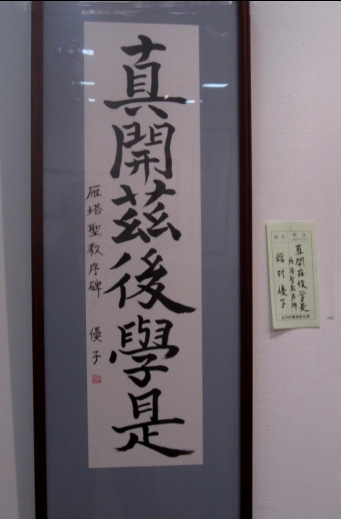 真開茲後學是
雁塔聖教序碑 優子
真開茲後學是
雁塔聖教序碑
稲村優子